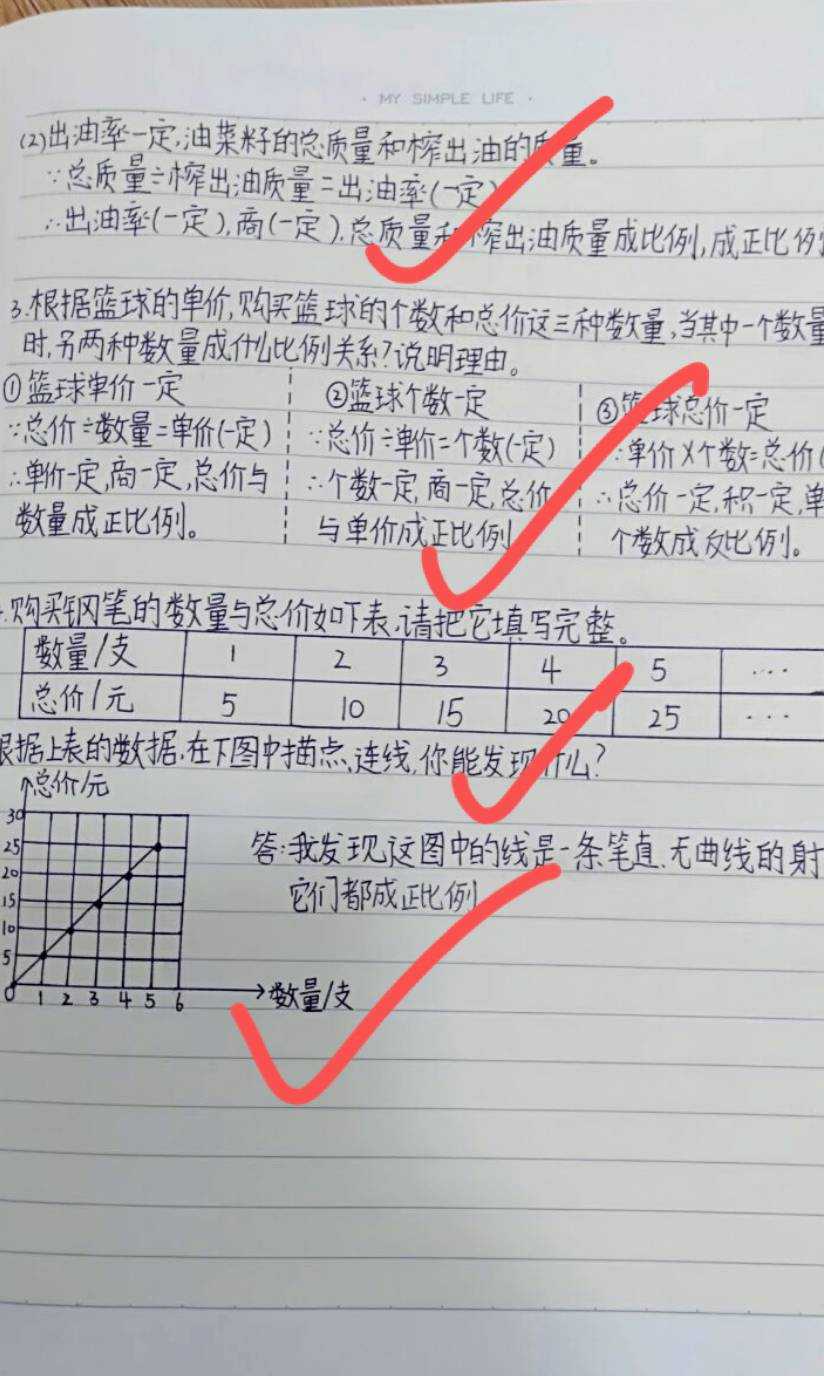 · MY SIMPLE LIFE ·
(2)出油率一定,油菜籽的总质量和榨出油的质量。
∵总质量÷榨出油质量=出油率(一定)
∴出油率(一定),商(一定).总质量和榨出油质量成比例,成正比例
3.根据篮球的单价,购买篮球的个数和总价这三种数量,当其中一个数量
时,另两种数量成什么比例关系?说明理由。
①篮球单价一定
∵总价÷数量=单价(一定)
∴单价一定,商一定,总价与
数量成正比例。
②篮球个数一定
∵总价÷单价=个数(一定)
∴个数一定,商一定,总价
与单价成正比例
③篮球总价一定
∵单价×个数=总价(
∴总价一定,积一定,单
个数成反比例。
.购买钢笔的数量与总价如下表,请把它填写完整。
数量/支 1 2 3 4 5 ...
总价/元 5 10 15 20 25 ...
根据上表的数据,在下图中描点、连线,你能发现什么?
总价/元
30
25
20
15
10
5
0 1 2 3 4 5 6
数量/支
答:我发现这图中的线是一条笔直、无曲线的射
它们都成正比例